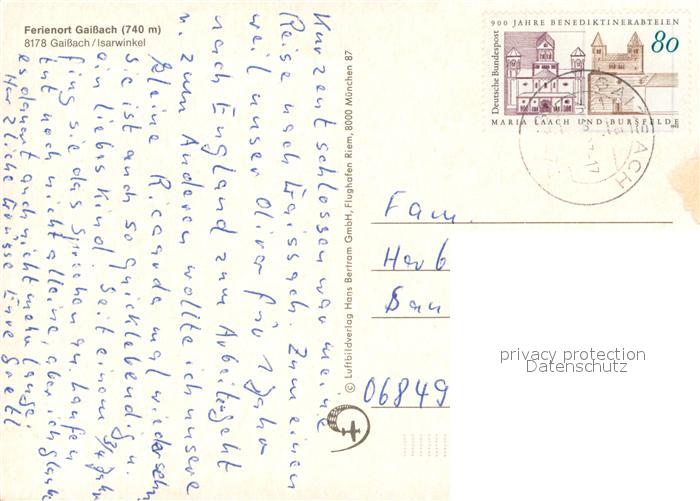 Ferienort Gaißach (740 m)
8178 Gaißach/Isarwinkel
Kurzentschlossen war meine
Reise nach Gaissach. Zum einen
weil unser Oliver für 1 Jahr
nach England zum Arbeiten geht
u. zum Anderen wollte ich unsere
kleine Ricarda mal wiedersehn
Sie ist auch so quicklebendig u.
ein liebes Kind. Seit einem 3/4 Jahr
fing sie das Sprechen an. Laufen
tut noch nicht alleine, aber ich glaub
es dauert auch nicht mehr lange.
Herzliche Grüsse Eure Gretl
© Luftbildverlag Hans Bertram GmbH, Flughafen Riem, 8000 München 87
900 JAHRE BENEDIKTINERABTEIEN
Deutsche Bundespost
80
MARIA LAACH UND BURSFELDE
Fam.
Herb
Bau
06849
privacy protection
Datenschutz